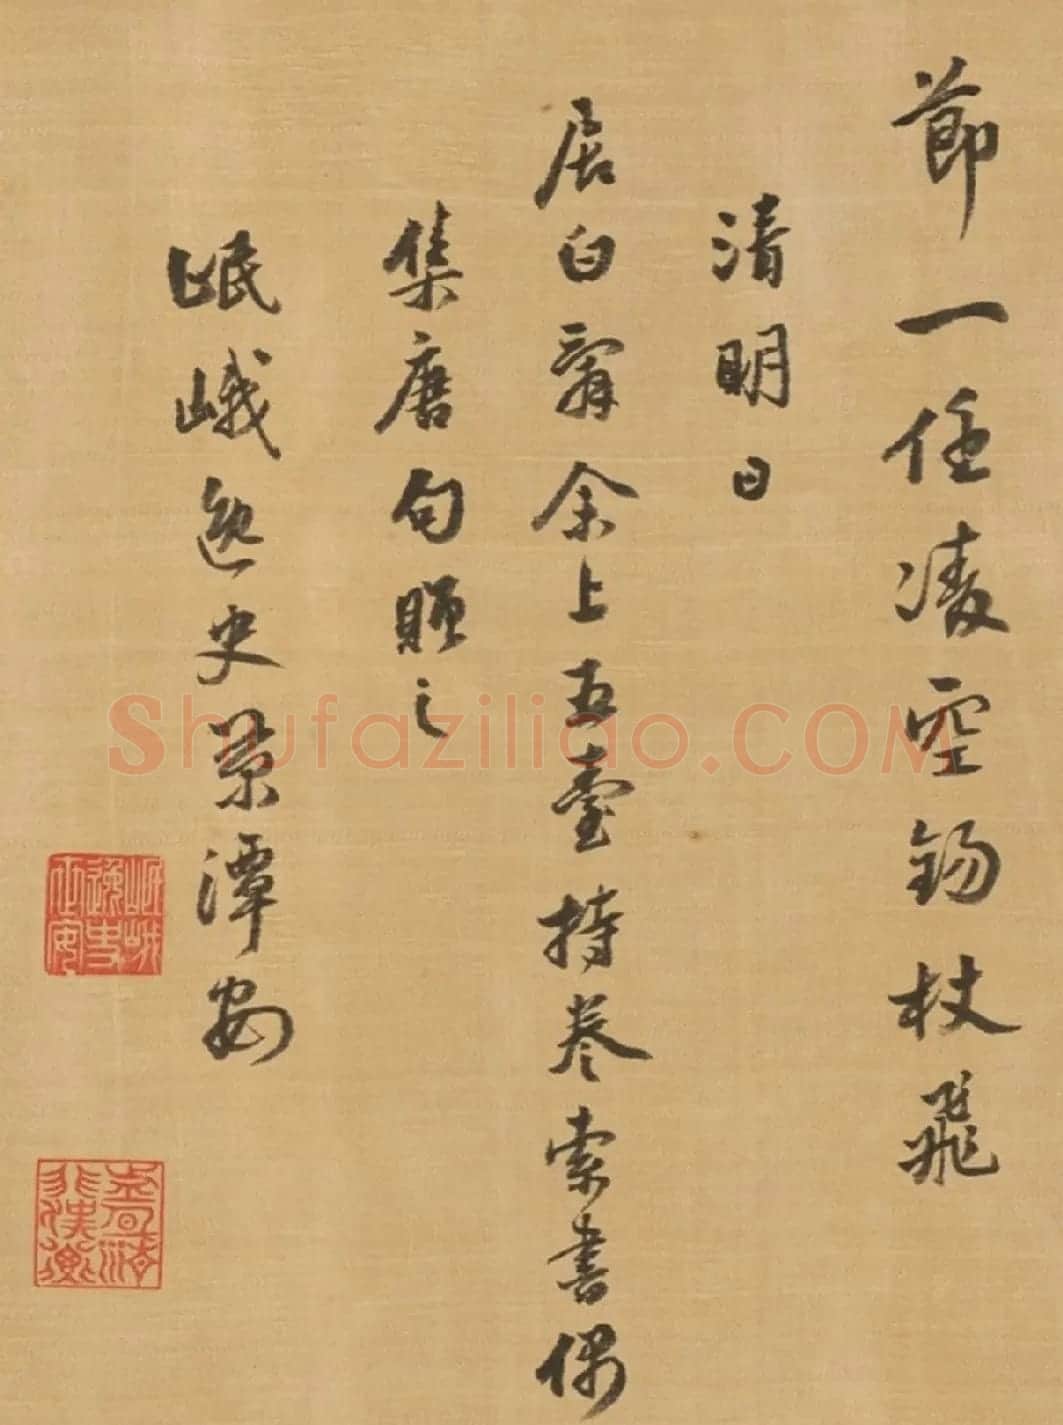 節一任凌空錫杖飛
清明日
居白辭余上五臺持卷索書偶
集唐句贐之
岷峨逸史景潭安
Shufaziliao.COM